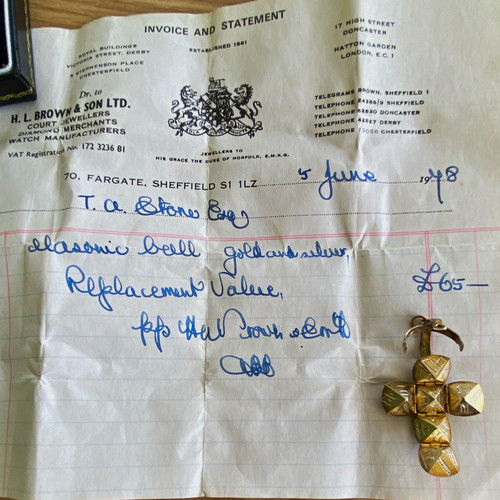 INVOICE AND STATEMENT
ESTABLISHED 1861
ROYAL BUILDINGS
VICTORIA STREET, DERBY
STEPHENSON PLACE
CHESTERFIELD
17 HIGH STREET
DONCASTER
HATTON GARDEN
LONDON, E.C.1
Dr. to
H. L. BROWN & SON LTD.
COURT JEWELLERS
DIAMOND MERCHANTS
WATCH MANUFACTURERS
VAT Registration No. 172 3236 81
TELEGRAMS BROWN, SHEFFIELD 1
TELEPHONE SHEFFIELD
TELEPHONE DONCASTER
TELEPHONE DERBY
TELEPHONE CHESTERFIELD
JEWELLERS TO
HIS GRACE THE DUKE OF NORFOLK, E.M.K.G.
70, FARGATE, SHEFFIELD S1 1LZ 5 June 1978
T. A. Stones Esq
Masonic ball gold and silver,
Replacement Value, £65—
p.p. H L Brown & Son Ltd